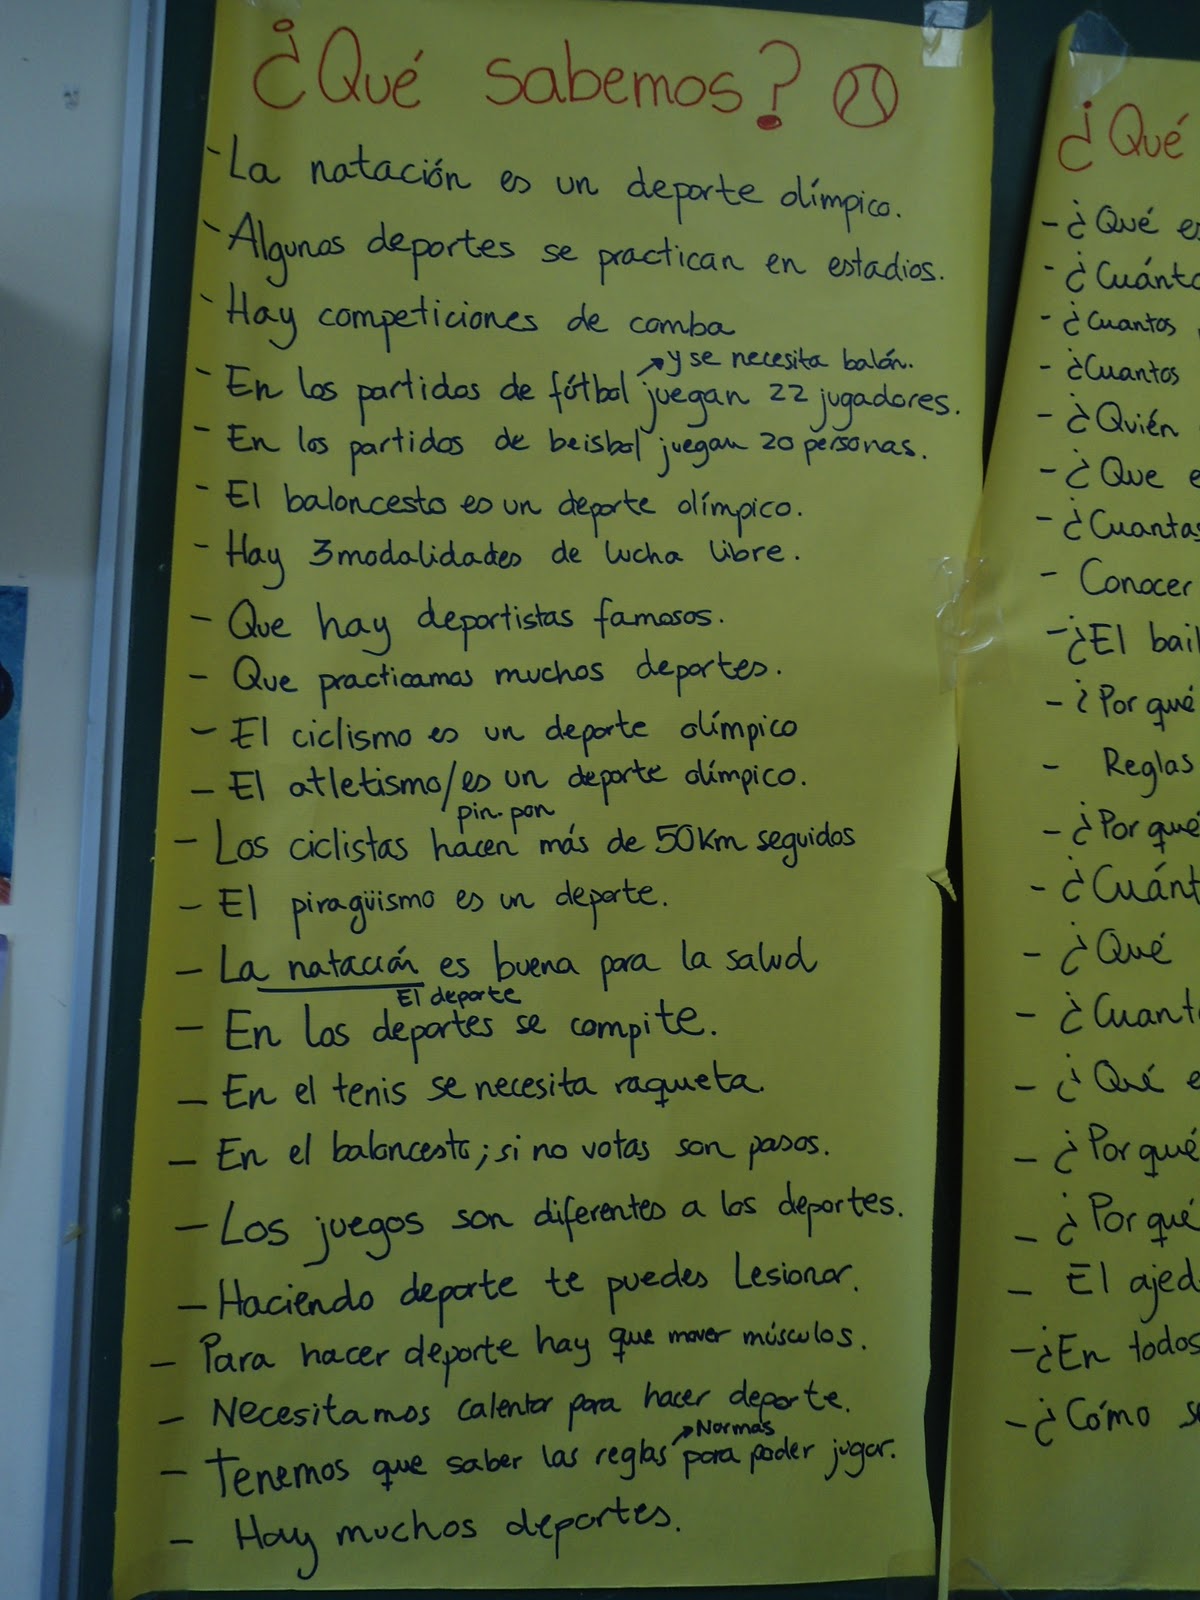 ¿Qué sabemos?
- La natación es un deporte olímpico.
- Algunos deportes se practican en estadios.
- Hay competiciones de comba
y se necesita balón.
- En los partidos de fútbol juegan 22 jugadores.
- En los partidos de beisbol juegan 20 personas.
- El baloncesto es un deporte olímpico.
- Hay 3 modalidades de lucha libre.
- Que hay deportistas famosos.
- Que practicamos muchos deportes.
- El ciclismo es un deporte olímpico
- El atletismo/es un deporte olímpico.
pin-pon
- Los ciclistas hacen más de 50km seguidos
- El piragüismo es un deporte.
- La natación es buena para la salud
El deporte
- En los deportes se compite.
- En el tenis se necesita raqueta.
- En el baloncesto; si no votas son pasos.
- Los juegos son diferentes a los deportes.
- Haciendo deporte te puedes Lesionar.
- Para hacer deporte hay que mover músculos.
- Necesitamos calentar para hacer deporte.
Normas
- Tenemos que saber las reglas para poder jugar.
- Hay muchos deportes.
¿Qué
- ¿Qué es
- ¿Cuánto
- ¿Cuantos
- ¿Cuantos
- ¿Quién
- ¿Que e
- ¿Cuantas
- Conocer
- ¿El bail
- ¿Por qué
- Reglas
- ¿Por qué
- ¿Cuánt
- ¿Qué
- ¿Cuant
- ¿Qué e
- ¿Por qué
- ¿Por qué
- El ajed
- ¿En todos
- ¿Cómo se